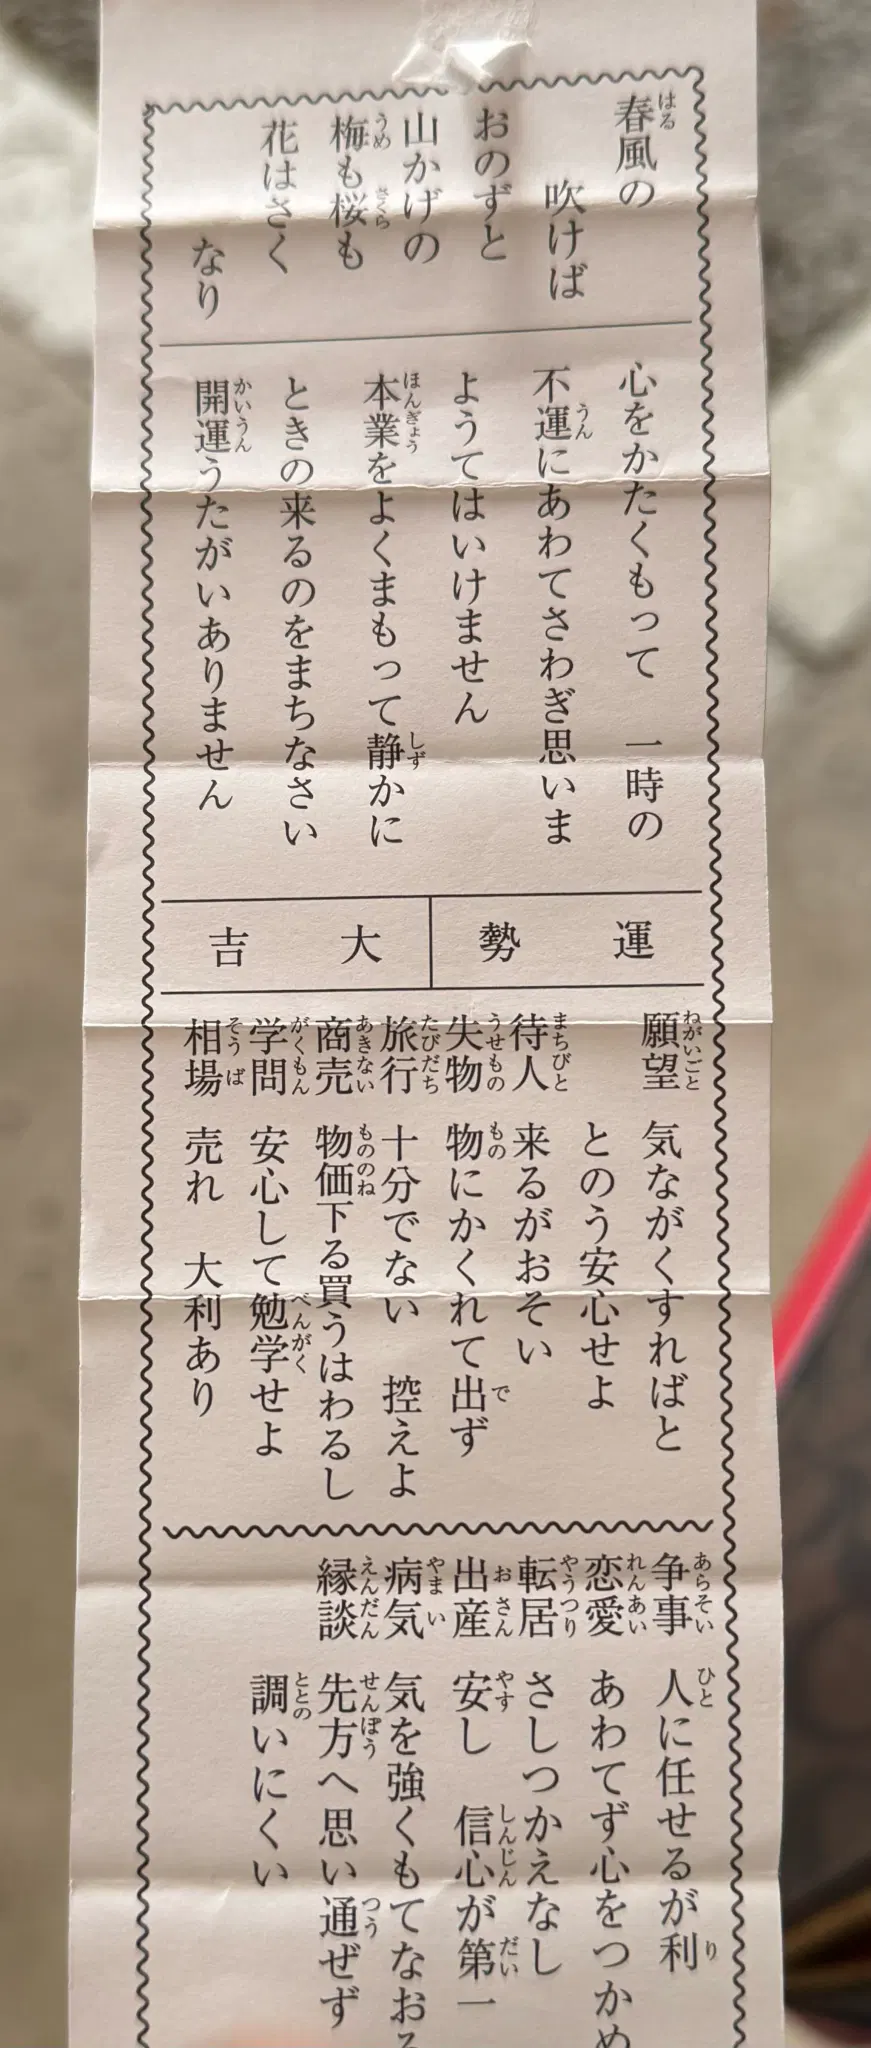 春風の
吹けば
おのずと
山かげの
梅も桜も
花はさく
なり
心をかたくもって　一時の
不運にあわてさわぎ思いま
ようてはいけません
本業をよくまもって静かに
ときの来るのをまちなさい
開運うたがいありません
運勢　大吉
願望　気ながくすればと
とのう安心せよ
待人　来るがおそい
失物　物にかくれて出ず
旅行　十分でない　控えよ
商売　物価下る買うはわるし
学問　安心して勉学せよ
相場　売れ　大利あり
争事　人に任せるが利
恋愛　あわてず心をつかめ
転居　さしつかえなし
出産　安し　信心が第一
病気　気を強くもてなおる
縁談　先方へ思い通ぜず
調いにくい